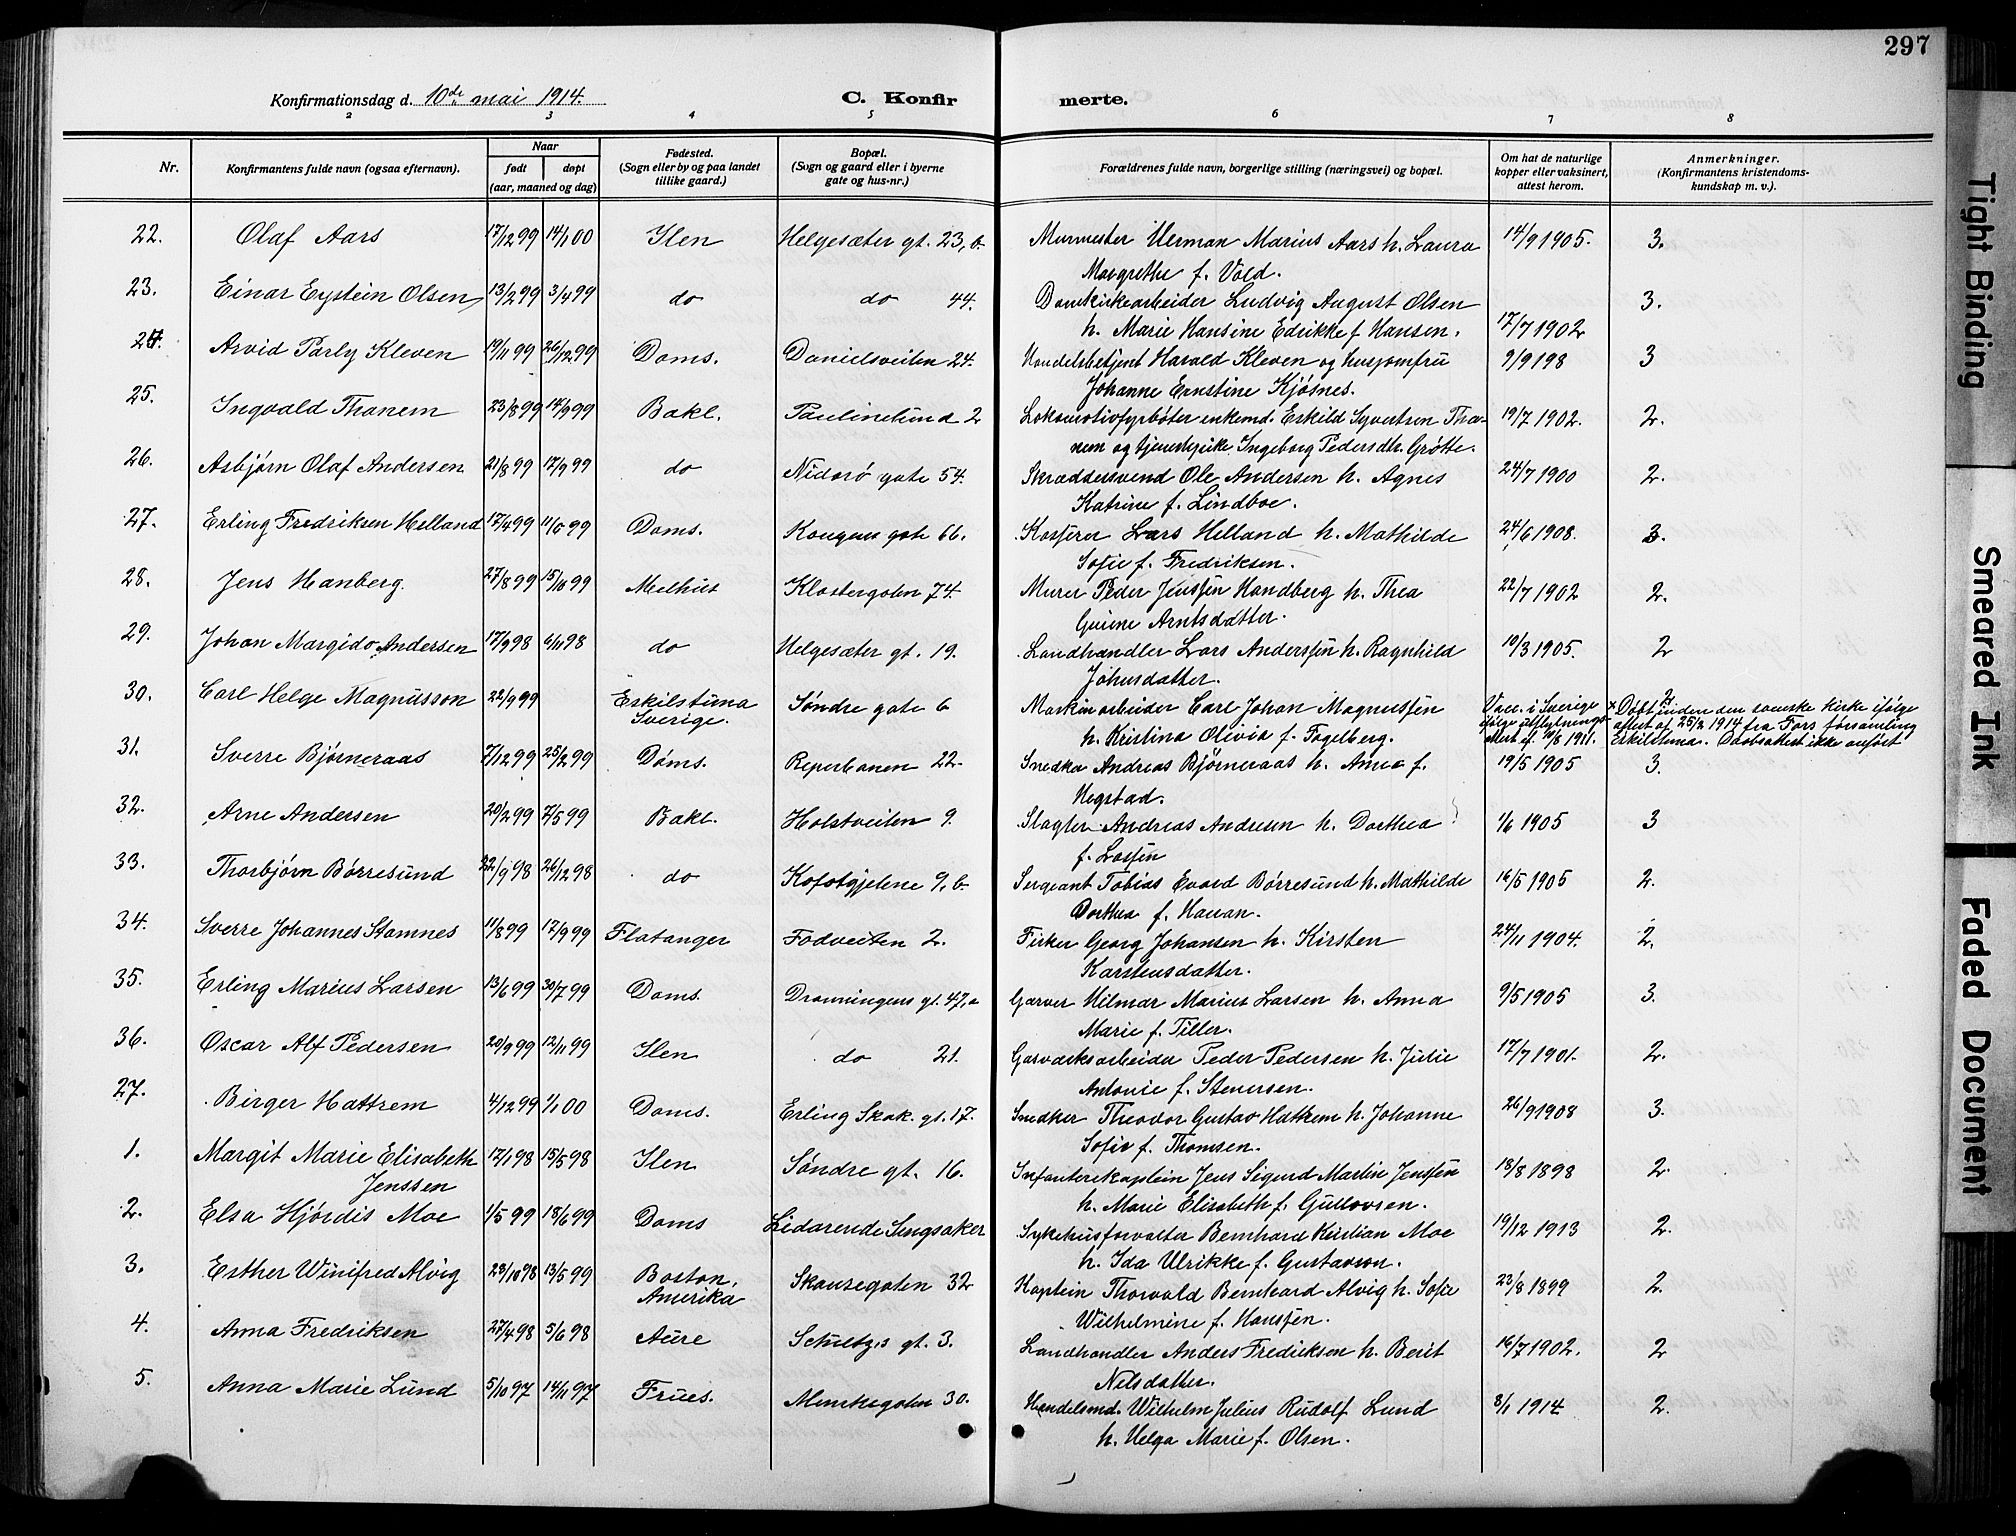 297
Konfirmationsdag d. 10de mai 1914.
C. Konfirmerte.
2 3 4 5 6 7 8
Nr. Konfirmantens fulde navn (ogsaa efternavn). Naar født døpt (aar, maaned og dag) Fødested. (Sogn eller by og paa landet tillike gaard.) Bopæl. (Sogn og gaard eller i byerne gate og hus-nr.) Forældrenes fulde navn, borgerlige stilling (næringsvei) og bopæl. Om hat de naturlige kopper eller vaksinert, attest herom. Anmerkninger. (Konfirmantens kristendomskundskap m. v.).
22. Olaf Aars 17/12 99 14/1 00 Ilen Helgesæter gt. 23, b. Murmester Herman Marius Aars h. Laura 14/9 1905. 3.
Margrethe f. Vold.
23. Einar Eystein Olsen 13/2 99 3/4 99 do do 44. Domkirkearbeider Ludvig August Olsen 3.
h. Marie Hansine Edrikke f. Hansen. 17/7 1902
24. Arvid Parly Kleven 19/11 99 26/12 99 Doms. Danielsveiten 24. Handelsbetjent Harald Kleven og husjomfru 9/9 198 3
Johanne Ernstine Kjøsnes.
25. Ingvald Thanem 23/8 99 14/9 99 Bakl. Paulinelund 2 Lokomotivfyrbøter enkemd. Eskild Syvertsen Tha- 19/7 1902. 2.
nem og tjenestepike Ingeborg Pedersdtr. Grøtte.
26. Asbjørn Olaf Andersen 21/8 99 17/9 99 do Nidarø gate 54. Skræddersvend Ole Andersen h. Agnes 24/7 1900 2.
Katrine f. Lindboe.
27. Erling Fredriksen Helland 17/4 99 Doms. Kongens gate 66. Kasserer Lars Helland h. Mathilde 24/6 1908. 3.
Sofie f. Fredriksen.
28. Jens Hanberg. 27/8 99 15/10 99 Melhus Klostergaten 74. Murer Peder Jenssen Handberg h. Thea 22/7 1902 2.
Guine Arntsdatter.
29. Johan Margido Andersen 17/9 98 6/11 98 do Helgesæter gt. 19. Landhandler Lars Anderssen h. Ragnhild 10/3 1905. 2
Johnsdatter.
30. Carl Helge Magnusson 22/9 99 Eskilstuna Sverige. Søndre gate 6 Maskinarbeider Carl Johan Magnussen Vacc. i Sverige 2 x Døpt inden den svenske kirke ifølge
h. Kristina Olivia f. Fagelberg. ifølge utflytnings- attest af 25/2 1914 fra Fors församling
attest af 10/8 1911. Eskilstuna. Daabsattest ikke anført
31. Sverre Bjørneraas 7/12 99 25/2 99 Doms. Reperbanen 22. Snedker Andreas Bjørneraas h. Anna f. 19/5 1905 3.
Hegstad.
32. Arne Andersen 20/2 99 7/5 99 Bakl. Holstveiten 9. Slagter Andreas Andresen h. Dorthea 1/6 1905 3
f. Lassen
33. Thorbjørn Børresund 22/9 98 26/12 98 do Kofotgjelene 9, b. Sergeant Tobias Evard Børresund h. Mathilde 16/5 1905 2.
Dorthea f. Hauan.
34. Sverre Johannes Stamnes 11/8 99 17/9 99 Flatanger Fodveiten 2. Fisker Georg Johansen h. Kirsten 24/11 1904. 2.
Karstensdatter.
35. Erling Marius Larsen 13/6 99 30/7 99 Doms. Dronningens gt. 47, a Garver Hilmar Marius Larsen h. Anna 9/5 1905 3.
Marie f. Tiller.
36. Oscar Alf Pedersen 20/9 99 12/11 99 Ilen do 21. Gasværksarbeider Peder Pedersen h. Julie 17/7 1901. 2.
Antonie f. Stenersen.
27. Birger Hattrem 4/12 99 1/1 00 Doms. Erling Skak. gt. 17. Snedker Theodor Gustav Hattrem h. Johanne 26/9 1908 3.
Sofie f. Thomsen.
1. Margit Marie Elisabeth Jenssen 17/1 98 15/5 98 Ilen Søndre gt. 16. Infanterikaptein Jens Sigurd Martin Jenssen 18/8 1898 2.
h. Marie Elisabeth f. Gullovsen.
2. Elsa Hjørdis Moe 1/5 99 18/6 99 Doms Lidarende Singsaker Sykehusforvalter Bernhard Kristian Moe 19/12 1913 2.
h. Ida Ulrikke f. Gustavson.
3. Esther Winifred Alvig 23/10 98 13/5 99 Boston, Amerika Skansegaten 32 Kaptein Thorvald Bernhard Alvig h. Sofie 23/8 1899 2.
Wilhelmine f. Hanssen.
4. Anna Fredriksen 27/4 98 5/6 98 Aure Schultzs gt. 3. Landhandler Anders Fredriksen h. Berit 16/7 1902. 2
Nilsdatter.
5. Anna Marie Lund 5/10 97 14/11 97 Frues. Munkegaten 30. Handelsmd. Wilhelm Julius Rudolf Lund 8/1 1914 2.
h. Helga Marie f. Olsen.
Tight Binding
Smeared Ink
Faded Document